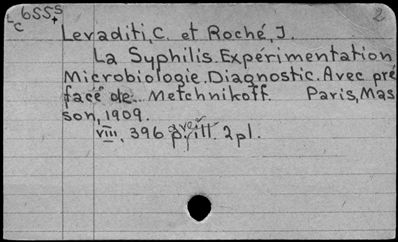 L655S+c 2
Levaditi, C. et Roché, J.
La Syphilis. Expérimentation
Microbiologie. Diagnostic. Avec pré
face de Metchnikoff. Paris, Mas
son, 1909.
viii, 396 p. avec ill. 2 pl.